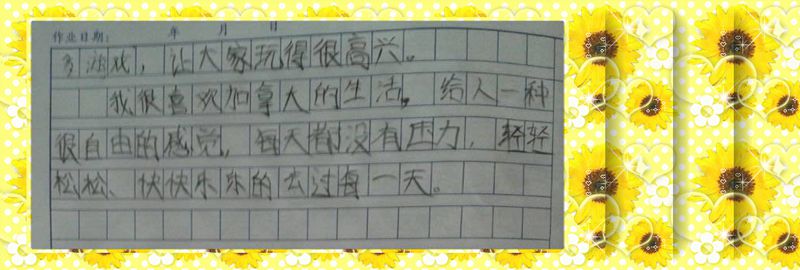 作业日期： 年 月 日
多游戏，让大家玩得很高兴。
我很喜欢加拿大的生活。给人一种
很自由的感觉，每天都没有压力，轻轻
松松、快快乐乐的去过每一天。